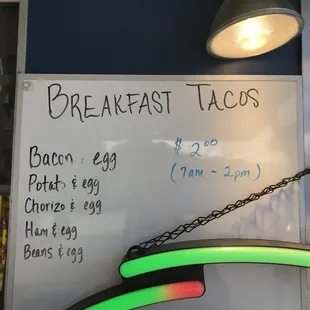 BREAKFAST TACOS
Bacon & egg
$2.00
Potato & egg
(7am - 2pm)
Chorizo & egg
Ham & egg
Beans & egg